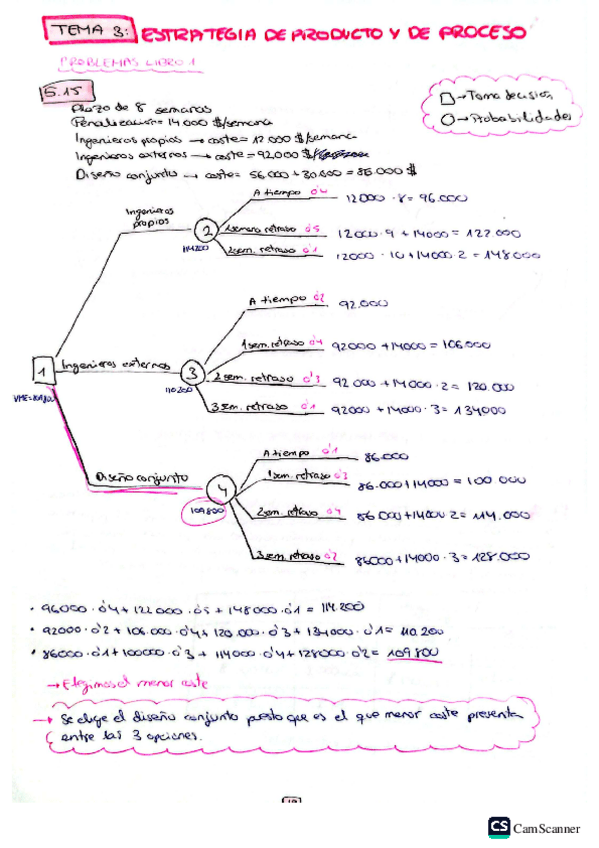 TEMA 3: ESTRATEGIA DE PRODUCTO Y DE PROCESO
PROBLEMAS LIBRO 1
5.15
Plazo de 8 semanas
Penalización = 14000 $/semana
Ingenieros propios → coste = 12 000 $/semana
Ingenieros externos → coste = 92000 $
Diseño conjunto → coste = 56.000 + 30.000 = 86.000 $
□ → Toma decisión
○ → Probabilidades
Ingenieros propios
2
114200
A tiempo 0'4 12000 · 8 = 96.000
1 semana retraso 0'5 12000 · 9 + 14000 = 122.000
2 sem. retraso 0'1 12000 · 10 + 14000 · 2 = 148000
1
VME = 109800
Ingenieros externos
3
110200
A tiempo 0'2 92.000
1 sem. retraso 0'4 92000 + 14000 = 106.000
2 sem. retraso 0'3 92 000 + 14000 · 2 = 120.000
3 sem. retraso 0'1 92000 + 14000 · 3 = 134000
Diseño conjunto
4
109800
A tiempo 0'1 86.000
1 sem. retraso 0'3 86.000 + 14000 = 100 000
2 sem. retraso 0'4 86 000 + 14000 · 2 = 114.000
3 sem. retraso 0'2 86000 + 14000 · 3 = 128.000
· 96000 · 0'4 + 122 000 · 0'5 + 148000 · 0'1 = 114.200
· 92000 · 0'2 + 106.000 · 0'4 + 120.000 · 0'3 + 134000 · 0'1 = 110.200
· 86000 · 0'1 + 100000 · 0'3 + 114000 · 0'4 + 128000 · 0'2 = 109800
→ Elegimos el menor coste
→ Se elige el diseño conjunto puesto que es el que menor coste presenta
entre las 3 opciones.
CS CamScanner